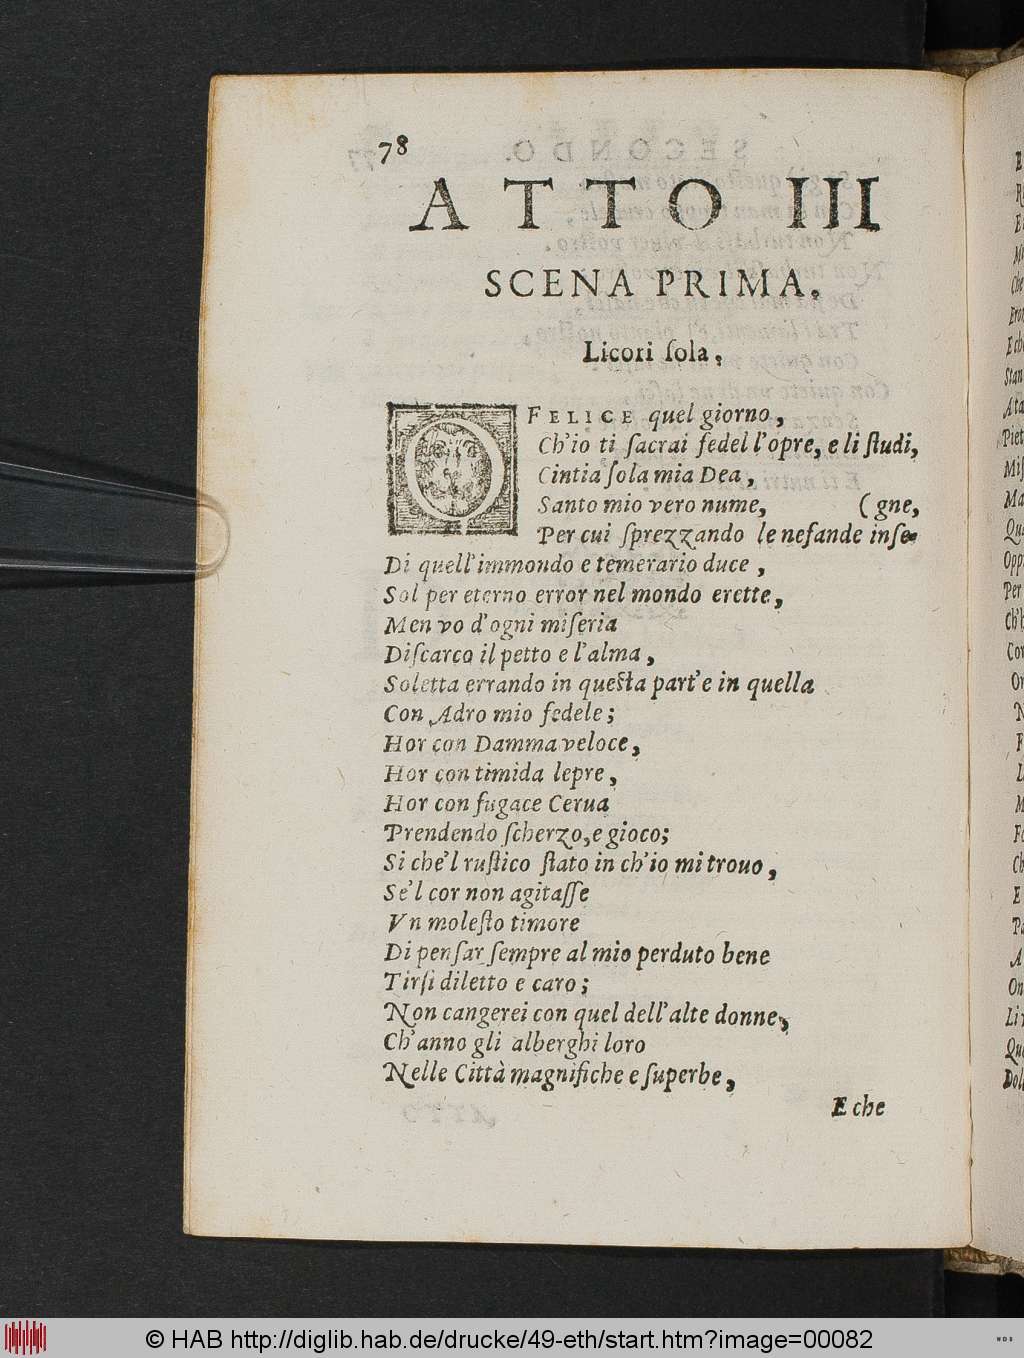 78
ATTO III
SCENA PRIMA.
Licori ſola.
O FELICE quel giorno,
Ch'io ti ſacrai fedel l'opre, e li ſtudi,
Cintia ſola mia Dea,
Santo mio vero nume, (gne,
Per cui ſprezzando le nefande inſe-
Di quell'immondo e temerario duce,
Sol per eterno error nel mondo erette,
Men vo d'ogni miſeria
Diſcarco il petto e l'alma,
Soletta errando in queſta part'e in quella
Con Adro mio fedele;
Hor con Damma veloce,
Hor con timida lepre,
Hor con fugace Cerua
Prendendo ſcherzo, e gioco;
Si che'l ruſtico ſtato in ch'io mi trouo,
Se'l cor non agitaſſe
Vn moleſto timore
Di penſar ſempre al mio perduto bene
Tirſi diletto e caro;
Non cangerei con quel dell'alte donne,
Ch'anno gli alberghi loro
Nelle Città magnifiche e ſuperbe,
E che
© HAB http://diglib.hab.de/drucke/49-eth/start.htm?image=00082